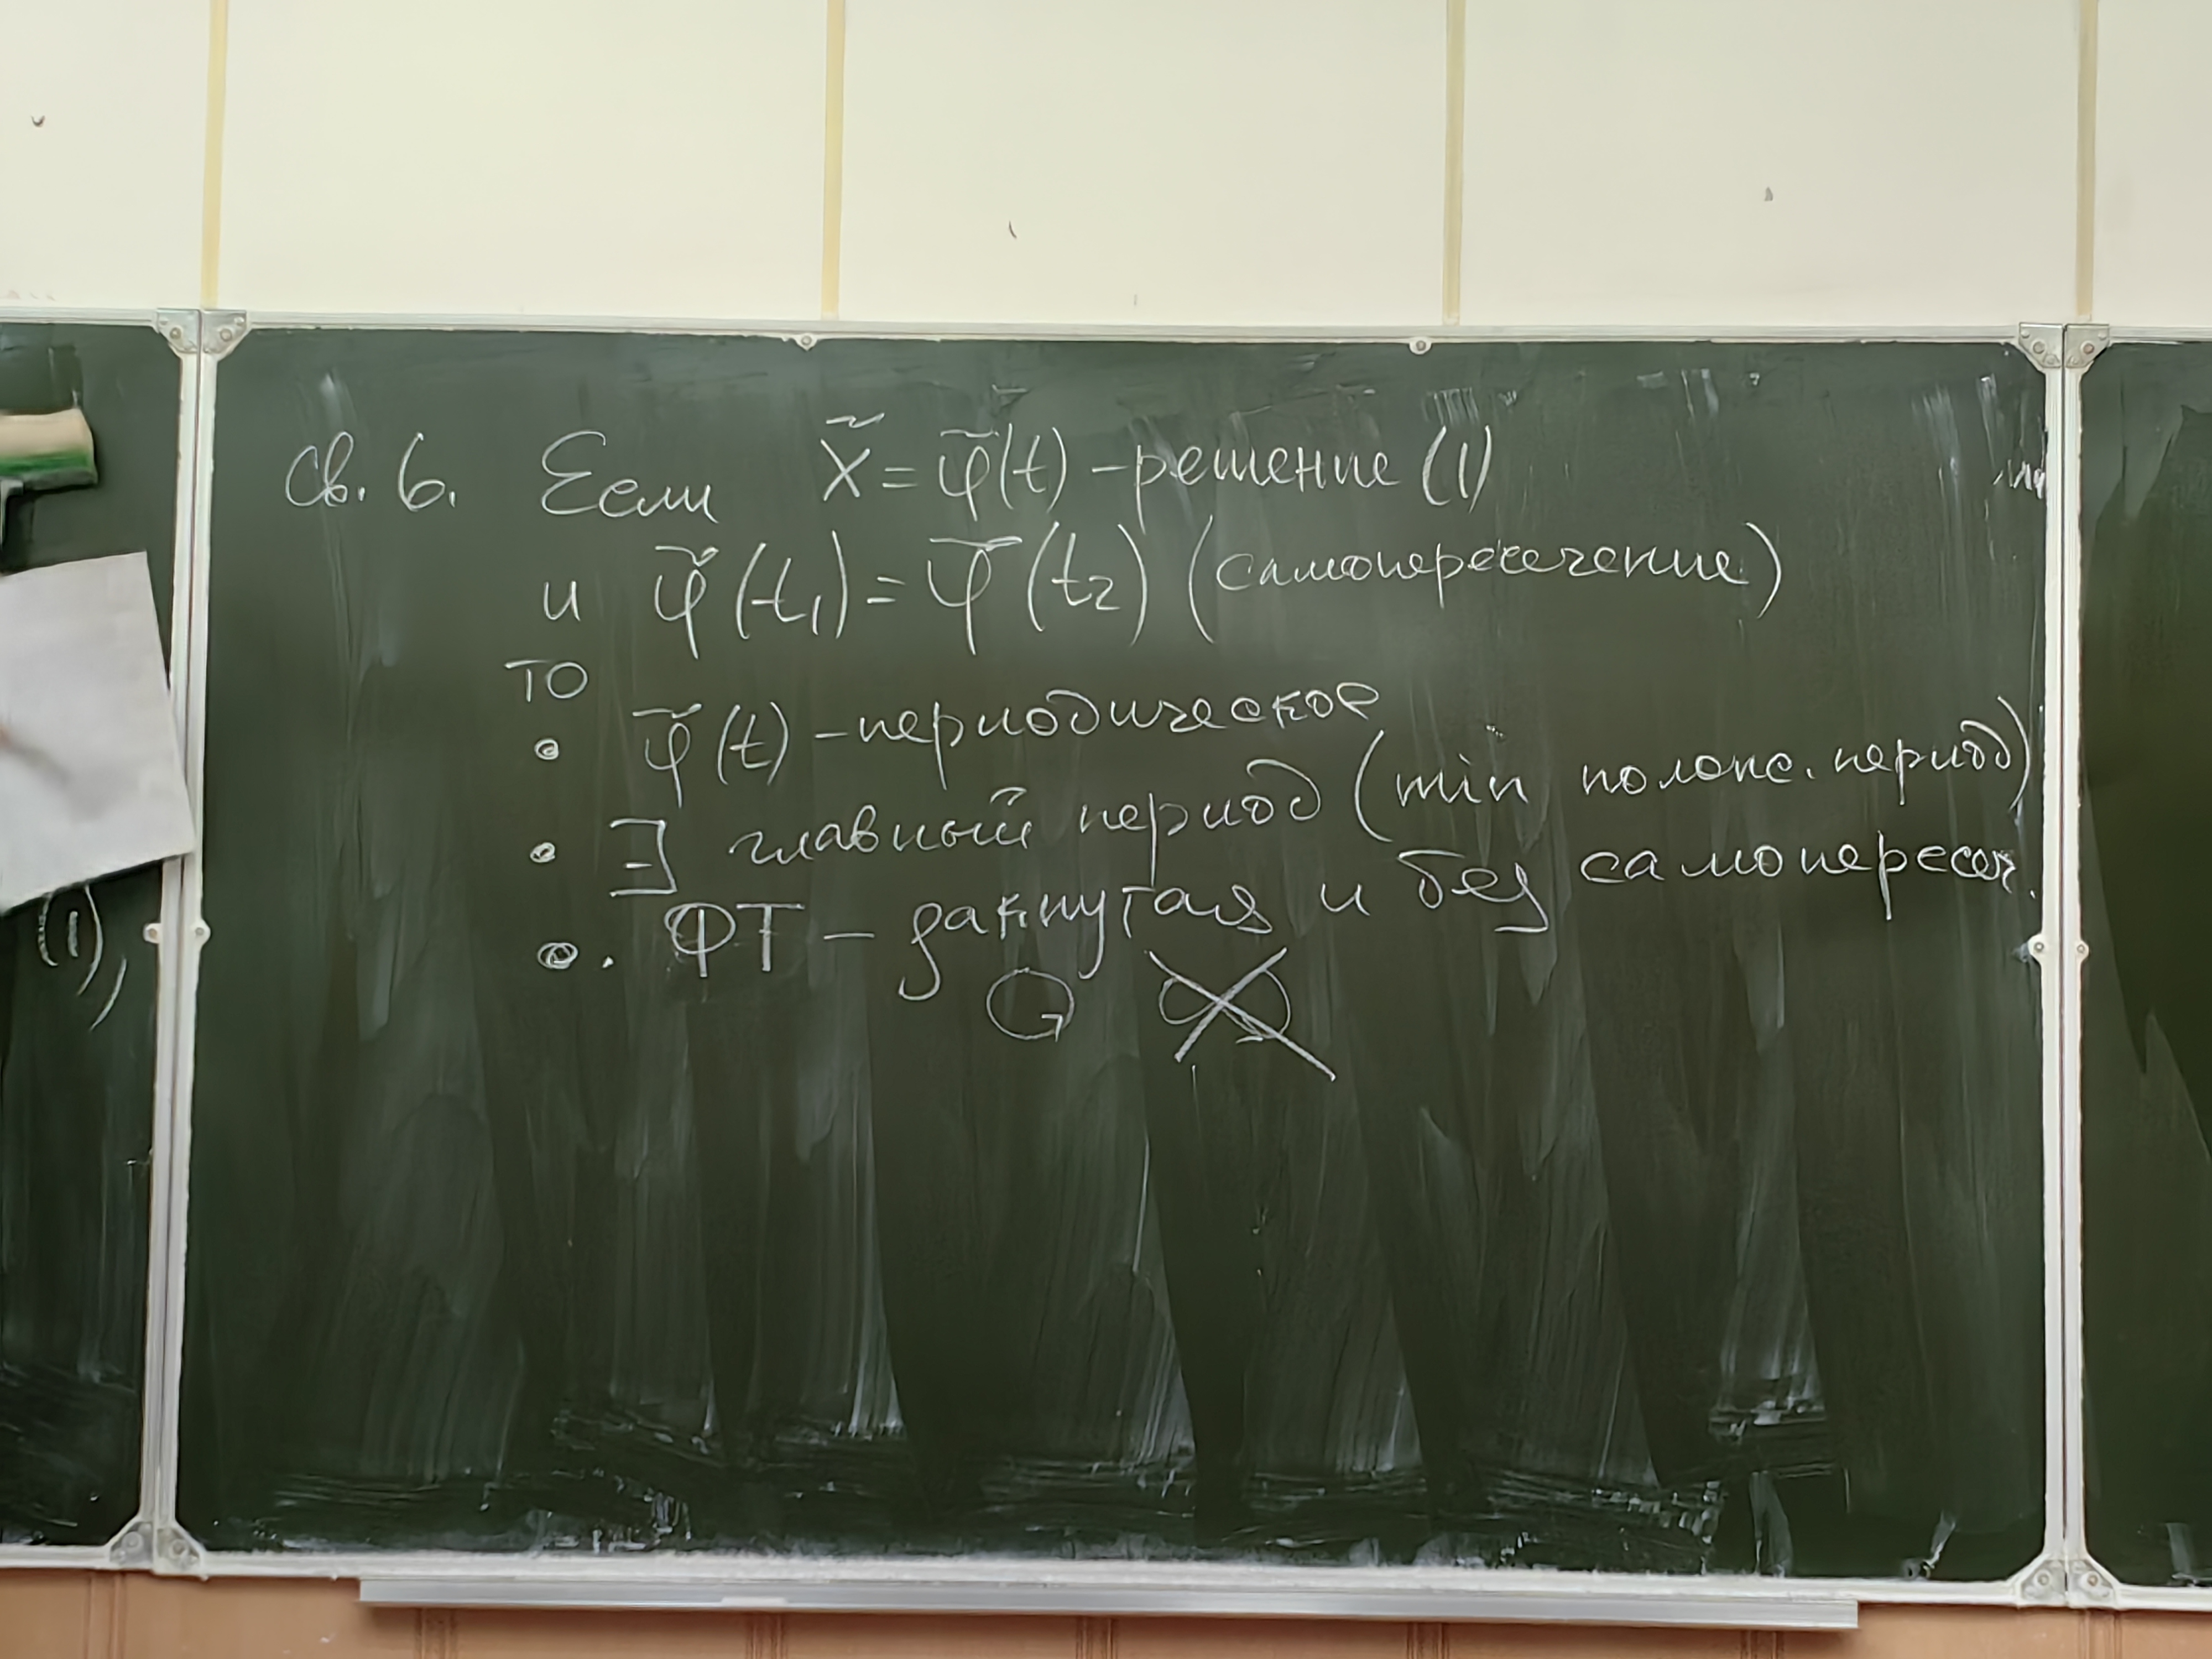 Св. 6. Если x̃ = φ̃(t) – решение (1)
и φ̃(t₁) = φ̃(t₂) (самопересечение)
то
• φ̃(t) – периодическое
• ∃ главный период (min полож. период)
• . ФТ – закнутая и без самопересеч.
(1),